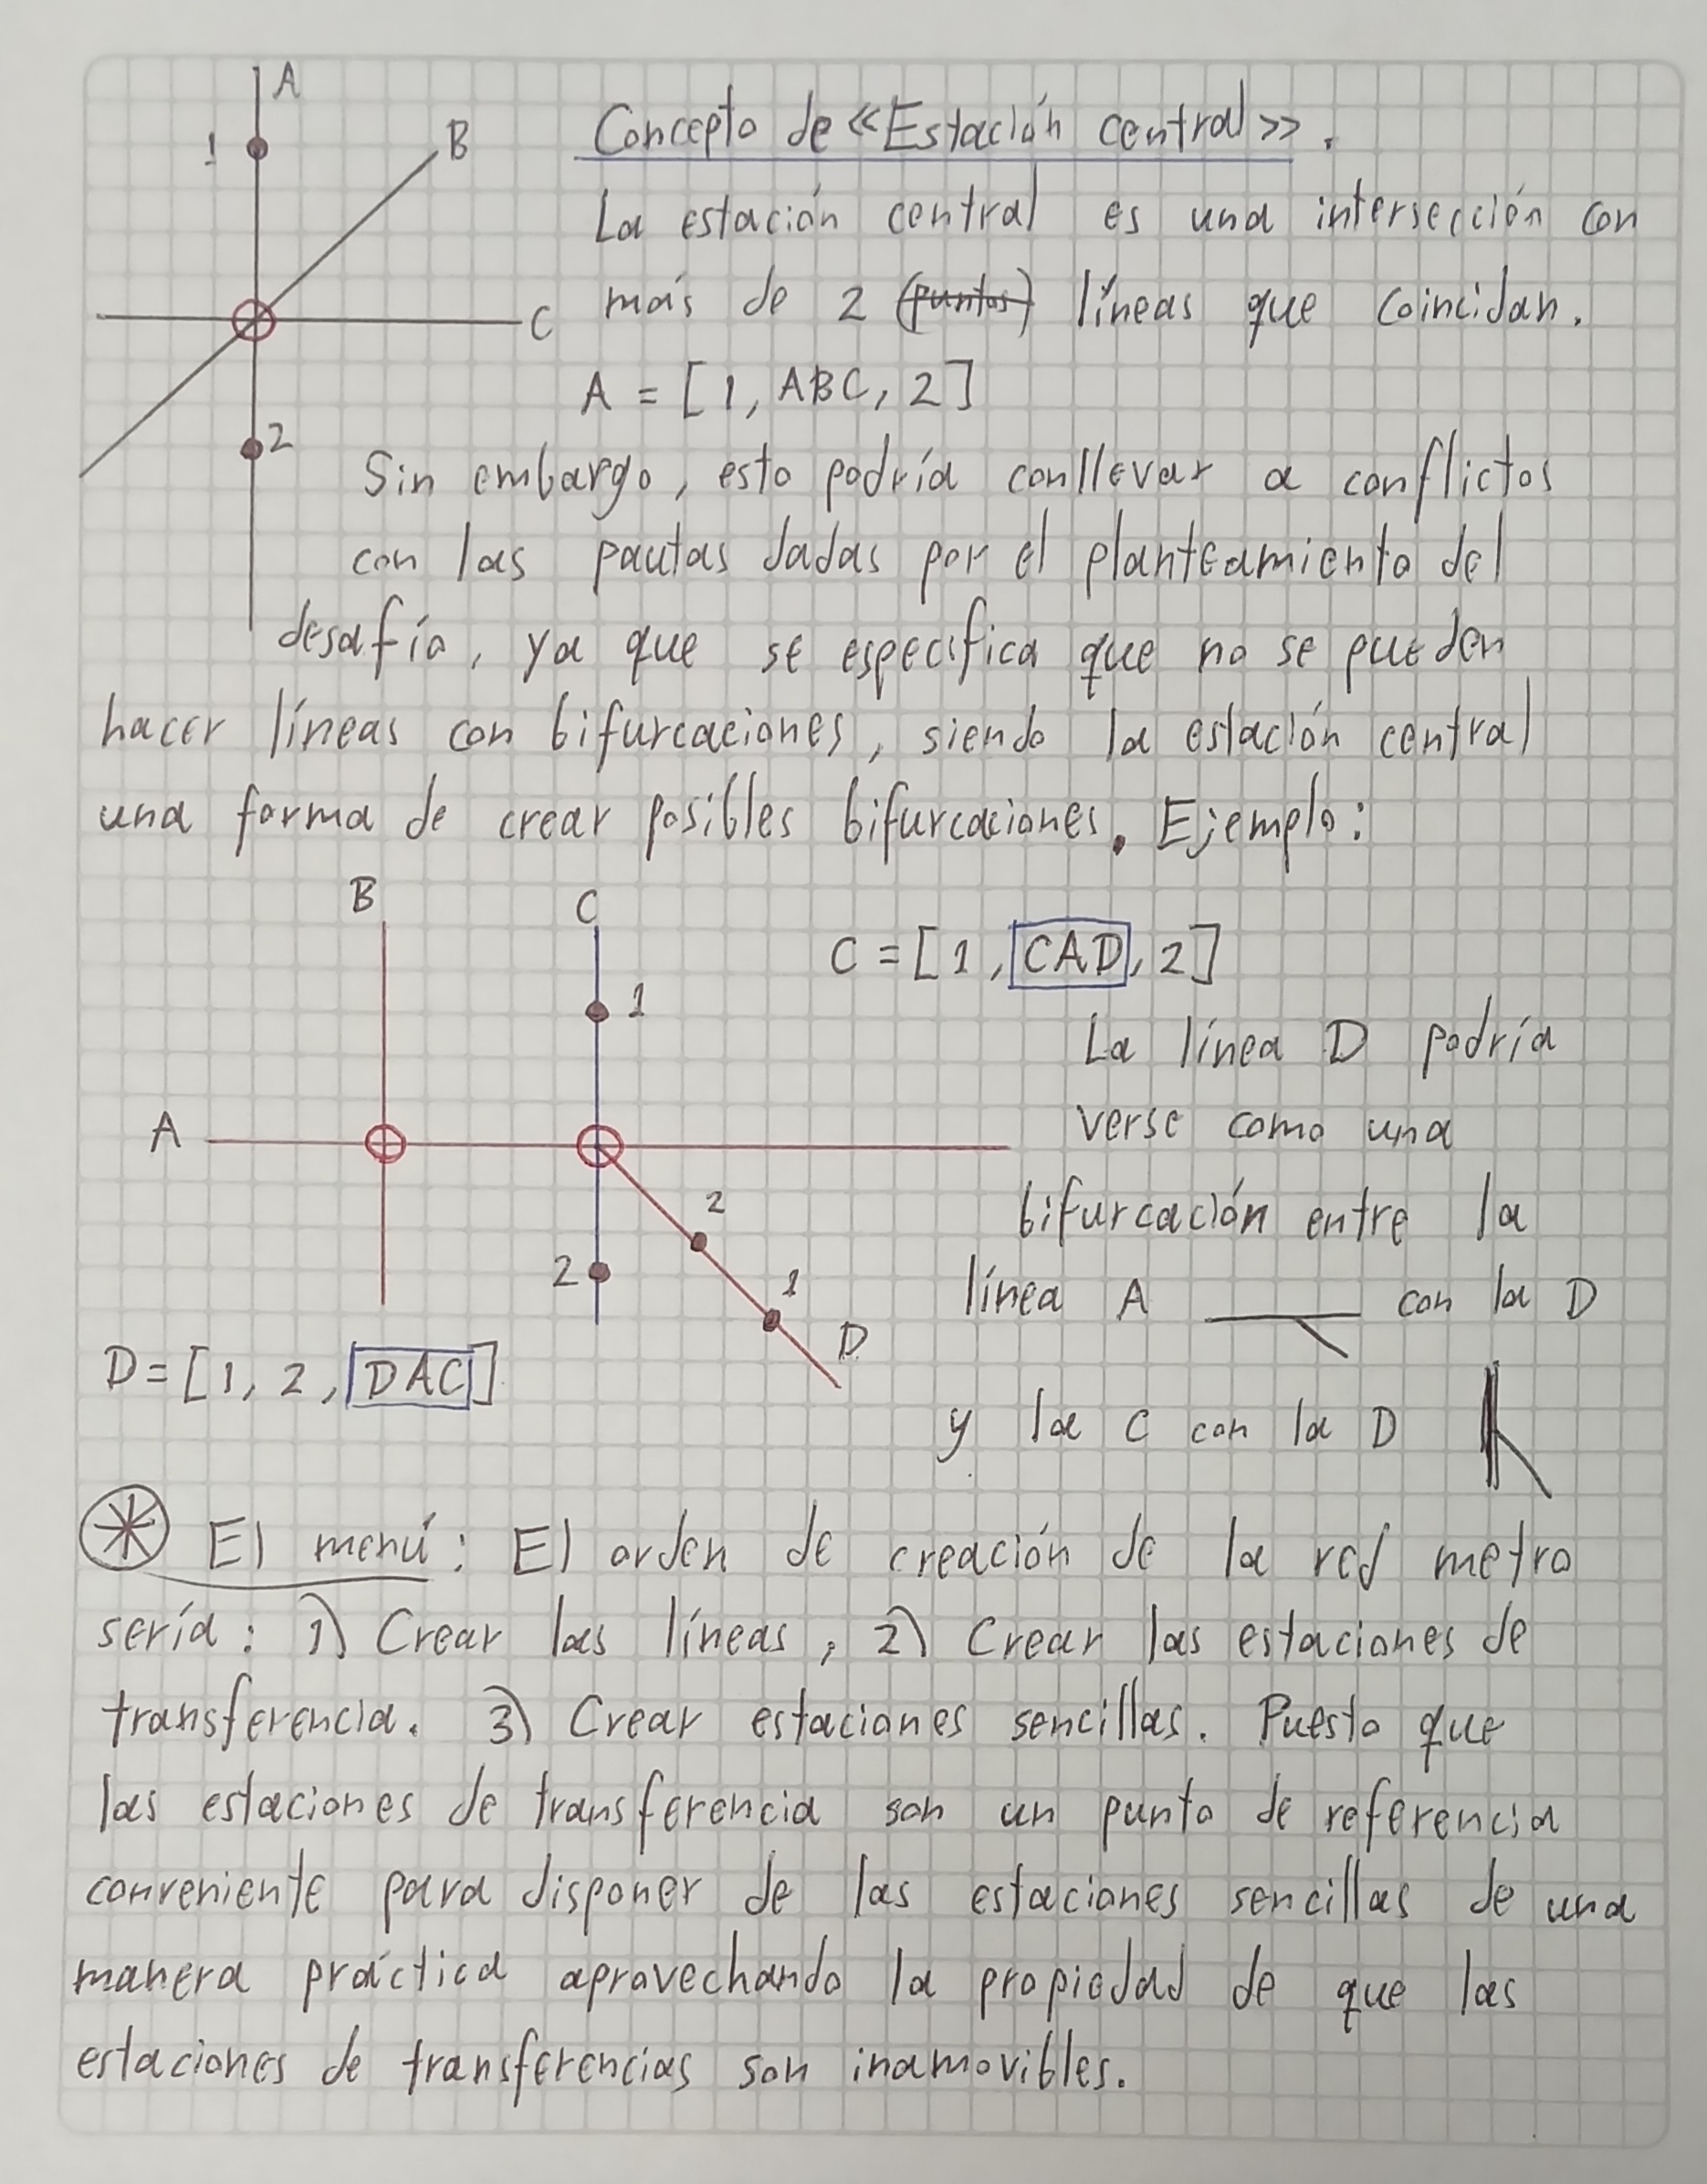 A
1
B
C
2
Concepto de «Estación central».
La estación central es una intersección con
más de 2 (puntos) líneas que coincidan.
A = [1, ABC, 2]
Sin embargo, esto podría conllevar a conflictos
con las pautas dadas por el planteamiento del
desafío, ya que se especifica que no se pueden
hacer líneas con bifurcaciones, siendo la estación central
una forma de crear posibles bifurcaciones. Ejemplo:
B
C
1
A
2
2
1
D
C = [1, CAD, 2]
La línea D podría
verse como una
bifurcación entre la
línea A con la D
D = [1, 2, DAC]
y la C con la D
* El menú: El orden de creación de la red metro
sería: 1) Crear las líneas, 2) Crear las estaciones de
transferencia. 3) Crear estaciones sencillas. Puesto que
las estaciones de transferencia son un punto de referencia
conveniente para disponer de las estaciones sencillas de una
manera práctica aprovechando la propiedad de que las
estaciones de transferencias son inamovibles.